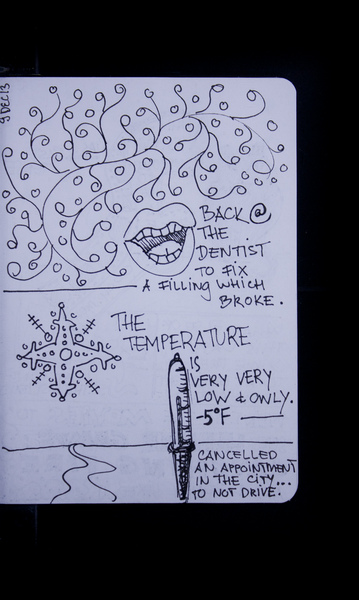 9 DEC 13
BACK @
THE
DENTIST
TO FIX
A FILLING WHICH
BROKE.
THE
TEMPERATURE
IS
VERY VERY
LOW & ONLY.
-5°F
CANCELLED
AN APPOINTMENT
IN THE CITY...
TO NOT DRIVE.